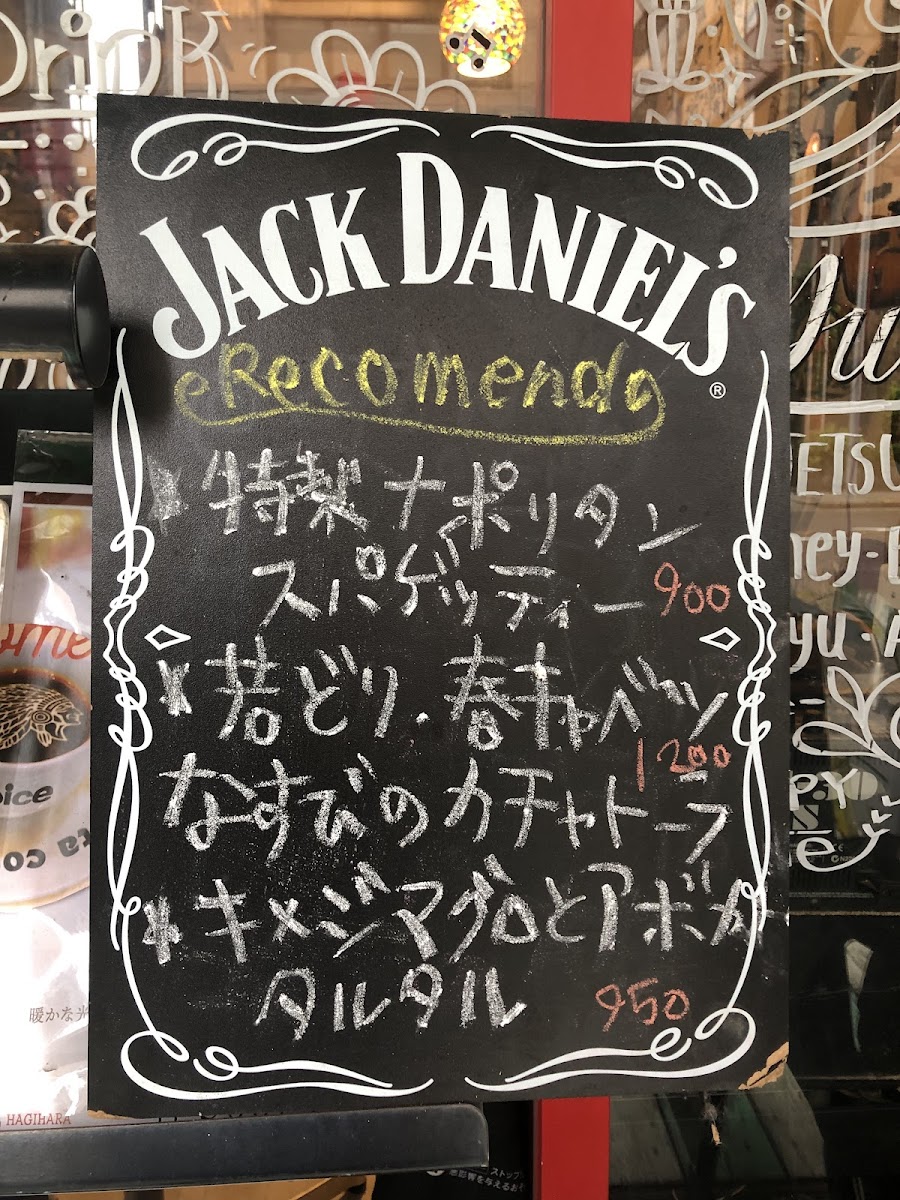 Drink
JACK DANIEL'S
®
Recomenda
* 特製ナポリタン
スパゲッティー 900
* 若どり.春キャベツ
1200
なすびのカチャトーラ
* キメジマグロとアボカ
タルタル 950
暖かな光
HAGIHARA
ストップ